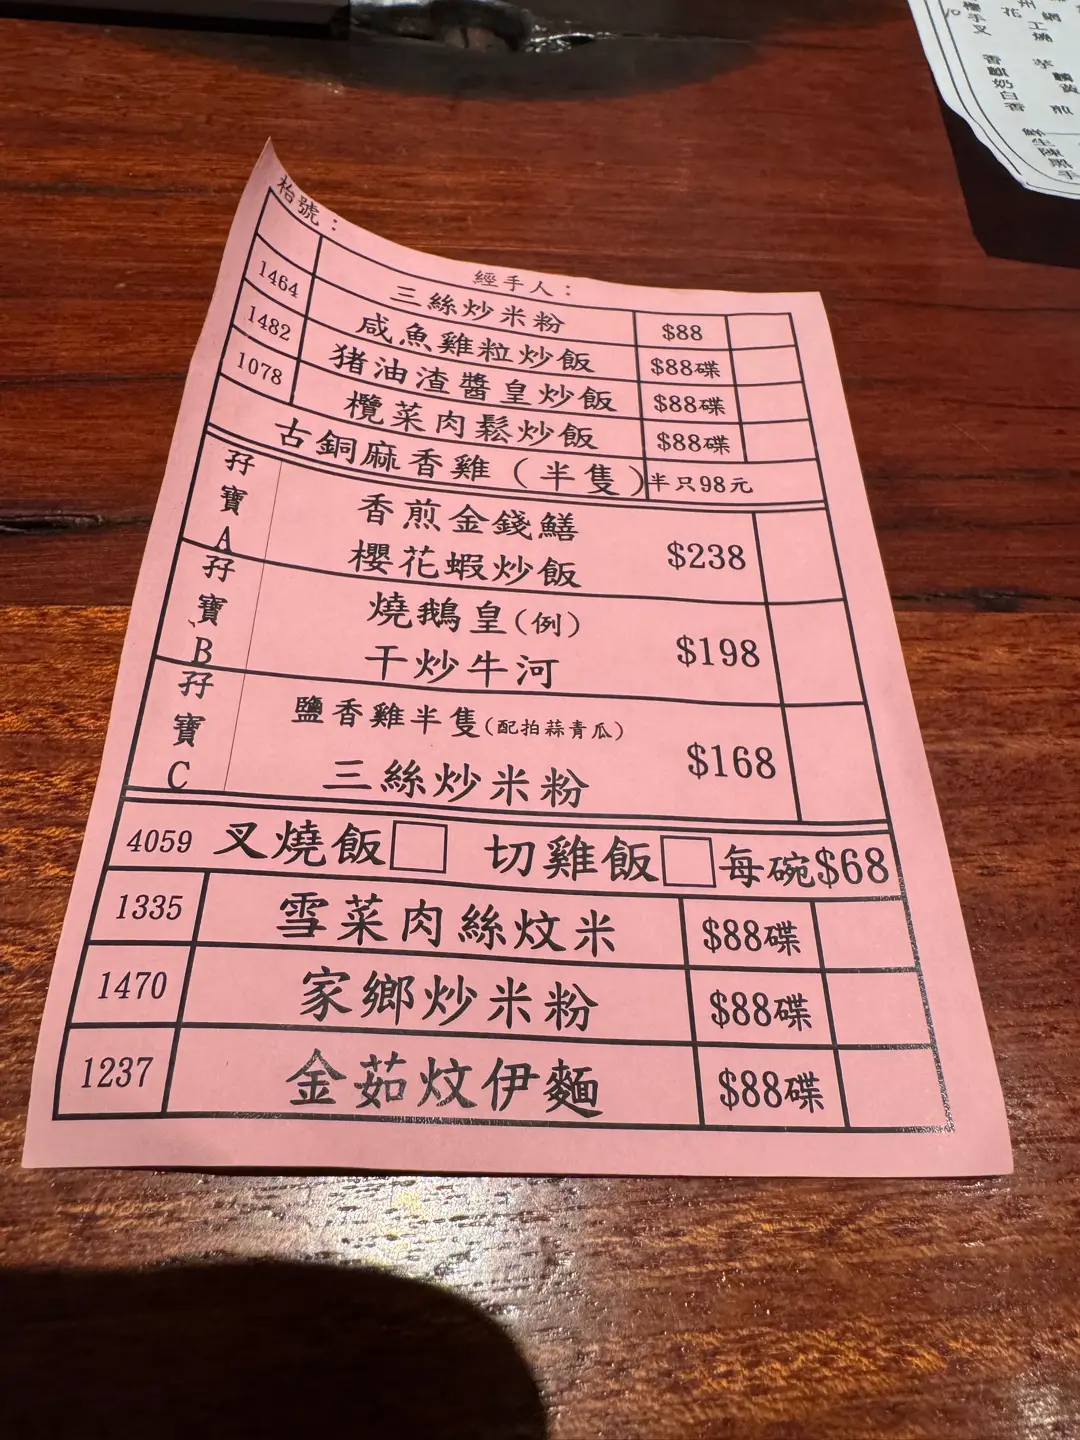 枱號：
經手人：
三絲炒米粉 $88
1464 咸魚雞粒炒飯 $88碟
1482 猪油渣醬皇炒飯 $88碟
1078 欖菜肉鬆炒飯 $88碟
古銅麻香雞（半隻） 半只98元
孖寶A 香煎金錢鱔
櫻花蝦炒飯 $238
孖寶B 燒鵝皇(例)
干炒牛河 $198
孖寶C 鹽香雞半隻(配拍蒜青瓜)
三絲炒米粉 $168
4059 叉燒飯□ 切雞飯□ 每碗$68
1335 雪菜肉絲炆米 $88碟
1470 家鄉炒米粉 $88碟
1237 金茹炆伊麵 $88碟